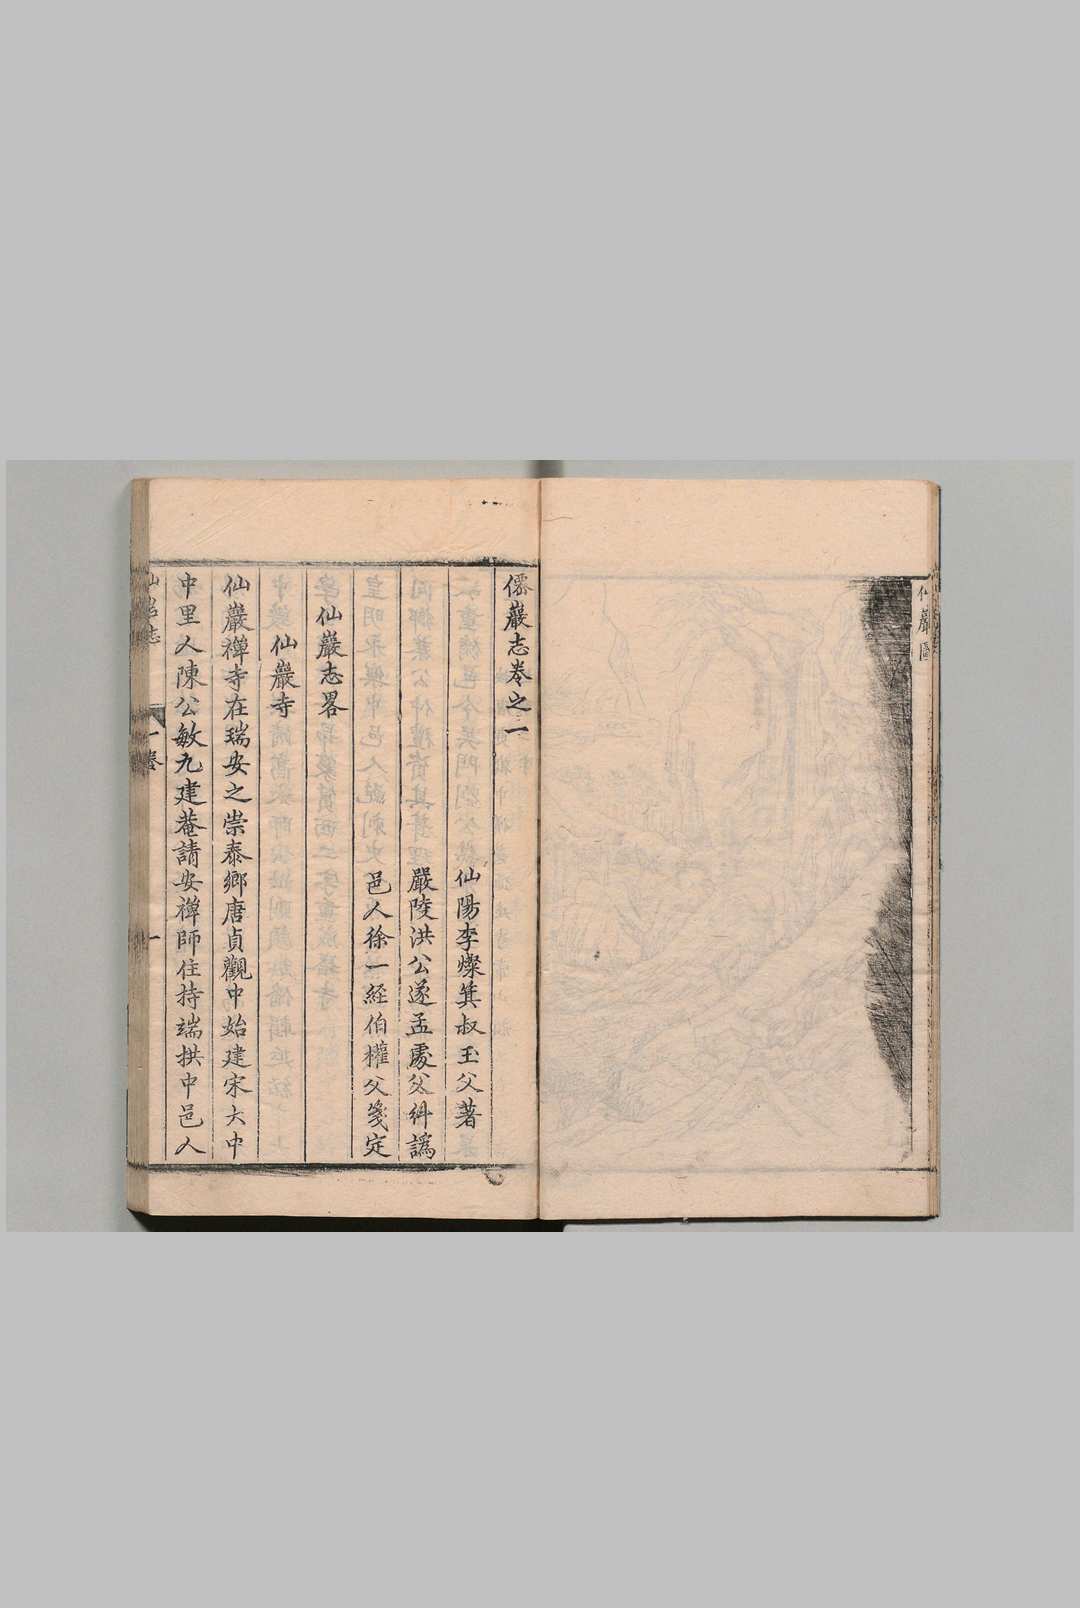 仙巖圖
僊巖志卷之一
仙陽李燦箕叔玉父著
嚴陵洪公遂孟處父糾譌
邑人徐一經伯權父箋定
仙巖志畧
仙巖寺
仙巖禪寺在瑞安之崇泰鄉唐貞觀中始建宋大中
中里人陳公敏九建菴請安禪師住持端拱中邑人
仙岩志
一卷
一